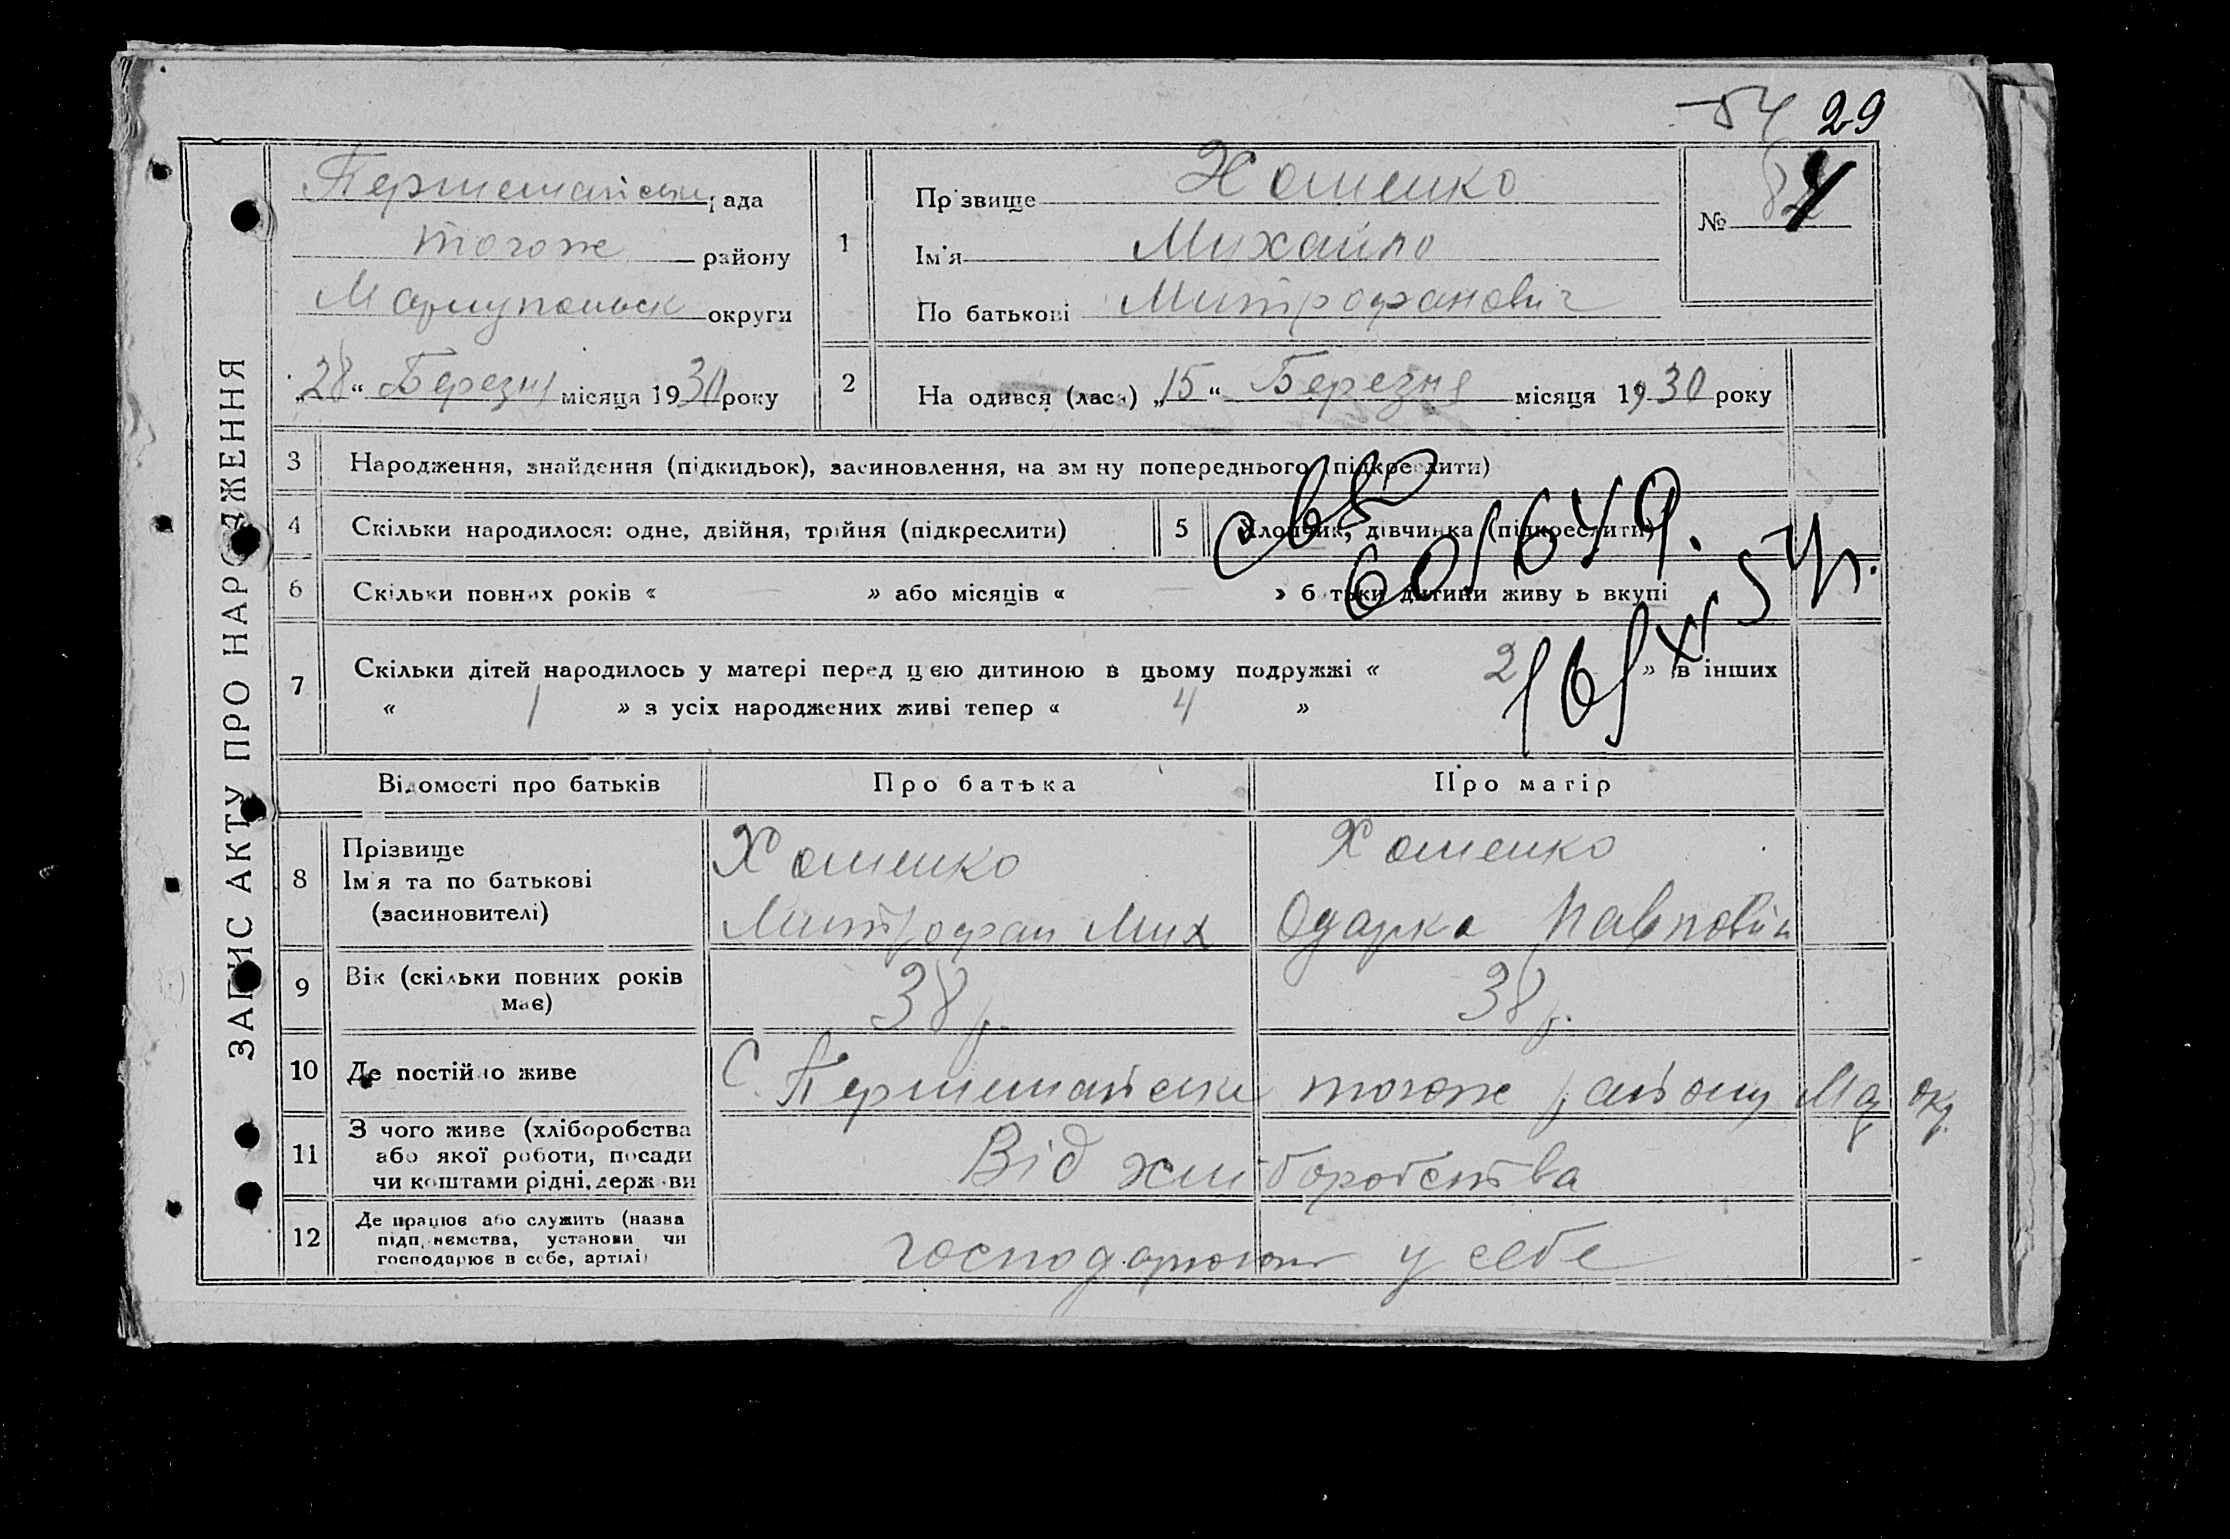 54 29
ЗАПИС АКТУ ПРО НАРОДЖЕННЯ
Першемайська рада
тогож району
Маріупольск округи
„28“ Березня місяця 1930 року
1
Прізвище Хоменко
Ім'я Михайло
По батькові Митрофанович
№
2
На одився (лась) „15“ Березня місяця 1930 року
3 Народження, знайдення (підкидьок), засиновлення, на зміну попереднього (підкреслити)
4 Скільки народилося: одне, двійня, трійня (підкреслити) 5 Хлопчик, дівчинка (підкреслити)
6 Скільки повних років « » або місяців « » батьки дитини живуть вкупі
7 Скільки дітей народилось у матері перед цією дитиною в цьому подружжі « 2 » в інших
« 1 » з усіх народжених живі тепер « 4 »
Відомості про батьків Про батька Про матір
8 Прізвище
Ім'я та по батькові
(засиновителі)
Хоменко
Митрофан Мих
Хоменко
Одарка Павловна
9 Вік (скільки повних років
має)
38 р. 38 р.
10 Де постійно живе С. Першемайське тогож району Мар окр.
11 З чого живе (хліборобства
або якої роботи, посади
чи коштами рідні, держави
Від хліборобства
12 Де працює або служить (назва
підприємства, установи чи
господарює в себе, артілі)
господарюють у себе